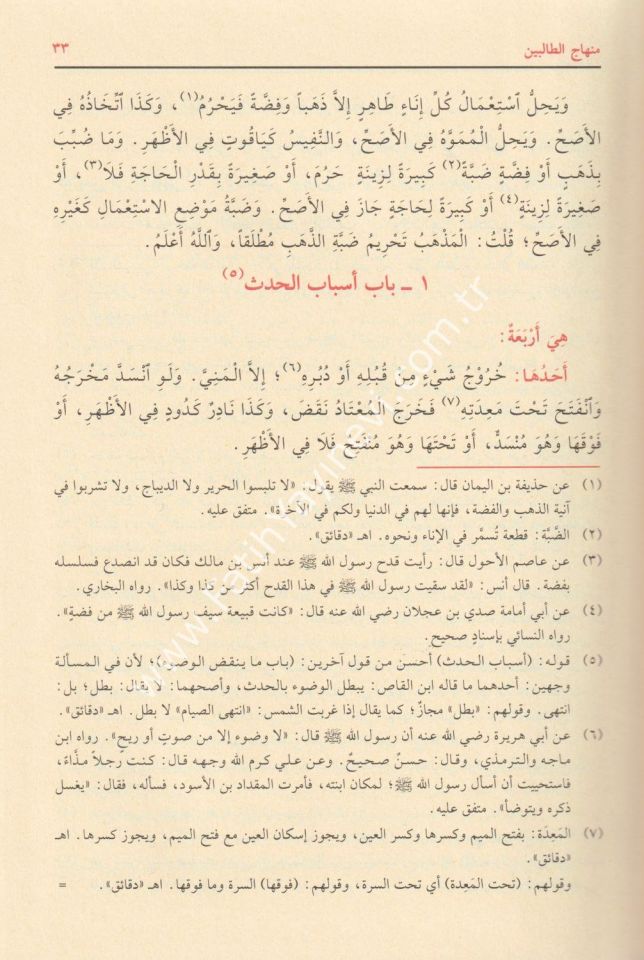 منهاج الطالبين ٣٣
وَيَحِلُّ ٱسْتِعْمَالُ كُلِّ إِنَاءٍ طَاهِرٍ إِلاَّ ذَهَباً وَفِضَّةً فَيَحْرُمُ(١)، وَكَذَا ٱتِّخَاذُهُ فِي
الأَصَحِّ. وَيَحِلُّ الْمُمَوَّهُ فِي الأَصَحِّ، وَالنَّفِيسُ كَيَاقُوتٍ فِي الأَظْهَرِ. وَمَا ضُبِّبَ
بِذَهَبٍ أَوْ فِضَّةٍ ضَبَّةً(٢) كَبِيرَةً لِزِينَةٍ حَرُمَ، أَوْ صَغِيرَةً بِقَدْرِ الْحَاجَةِ فَلاَ(٣)، أَوْ
صَغِيرَةً لِزِينَةٍ(٤) أَوْ كَبِيرَةً لِحَاجَةٍ جَازَ فِي الأَصَحِّ. وَضَبَّةُ مَوْضِعِ الاسْتِعْمَالِ كَغَيْرِهِ
فِي الأَصَحِّ؛ قُلْتُ: الْمَذْهَبُ تَحْرِيمُ ضَبَّةِ الذَّهَبِ مُطْلَقاً، وَٱللَّهُ أَعْلَمُ.
١ ـ باب أسباب الحدث(٥)
هِيَ أَرْبَعَةٌ:
أَحَدُهَا: خُرُوجُ شَيْءٍ مِنْ قُبُلِهِ أَوْ دُبُرِهِ(٦)؛ إِلاَّ الْمَنِيَّ. وَلَوِ ٱنْسَدَّ مَخْرَجُهُ
وَٱنْفَتَحَ تَحْتَ مَعِدَتِهِ(٧) فَخَرَجَ الْمُعْتَادُ نَقَضَ، وَكَذَا نَادِرٌ كَدُودٍ فِي الأَظْهَرِ، أَوْ
فَوْقَهَا وَهُوَ مُنْسَدٌّ، أَوْ تَحْتَهَا وَهُوَ مُنْفَتِحٌ فَلاَ فِي الأَظْهَرِ.
(١) عن حذيفة بن اليمان قال: سمعت النبي ﷺ يقول: «لا تلبسوا الحرير ولا الديباج، ولا تشربوا في
آنية الذهب والفضة، فإنها لهم في الدنيا ولكم في الآخرة». متفق عليه.
(٢) الضَّبَّة: قطعة تُسمَّر في الإناء ونحوه. اهـ «دقائق».
(٣) عن عاصم الأحول قال: رأيت قدح رسول الله ﷺ عند أنس بن مالك فكان قد انصدع فسلسله
بفضة. قال أنس: «لقد سقيت رسول الله ﷺ في هذا القدح أكثر من كذا وكذا». رواه البخاري.
(٤) عن أبي أمامة صدي بن عجلان رضي الله عنه قال: «كانت قبيعة سيف رسول الله ﷺ من فضةٍ».
رواه النسائي بإسنادٍ صحيح.
(٥) قوله: (أسباب الحدث) أحسن من قول آخرين: (باب ما ينقض الوضوء)؛ لأن في المسألة
وجهين: أحدهما ما قاله ابن القاص: يبطل الوضوء بالحدث، وأصحهما: لا يقال: بطل؛ بل:
انتهى. وقولهم: «بطل» مجازٌ؛ كما يقال إذا غربت الشمس: «انتهى الصيام» لا بطل. اهـ «دقائق».
(٦) عن أبي هريرة رضي الله عنه أن رسول الله ﷺ قال: «لا وضوء إلا من صوتٍ أو ريحٍ». رواه ابن
ماجه والترمذي، وقال: حسنٌ صحيحٌ. وعن علي كرم الله وجهه قال: كنت رجلاً مذّاءً،
فاستحييت أن أسأل رسول الله ﷺ؛ لمكان ابنته، فأمرت المقداد بن الأسود، فسأله، فقال: «يغسل
ذكره ويتوضأ». متفق عليه.
(٧) المَعِدَة: بفتح الميم وكسرها وكسر العين، ويجوز إسكان العين مع فتح الميم، ويجوز كسرها. اهـ
«دقائق».
وقولهم: (تحت المَعِدة) أي تحت السرة، وقولهم: (فوقها) السرة وما فوقها. اهـ «دقائق». =
www.fatihyayinevi.com.tr